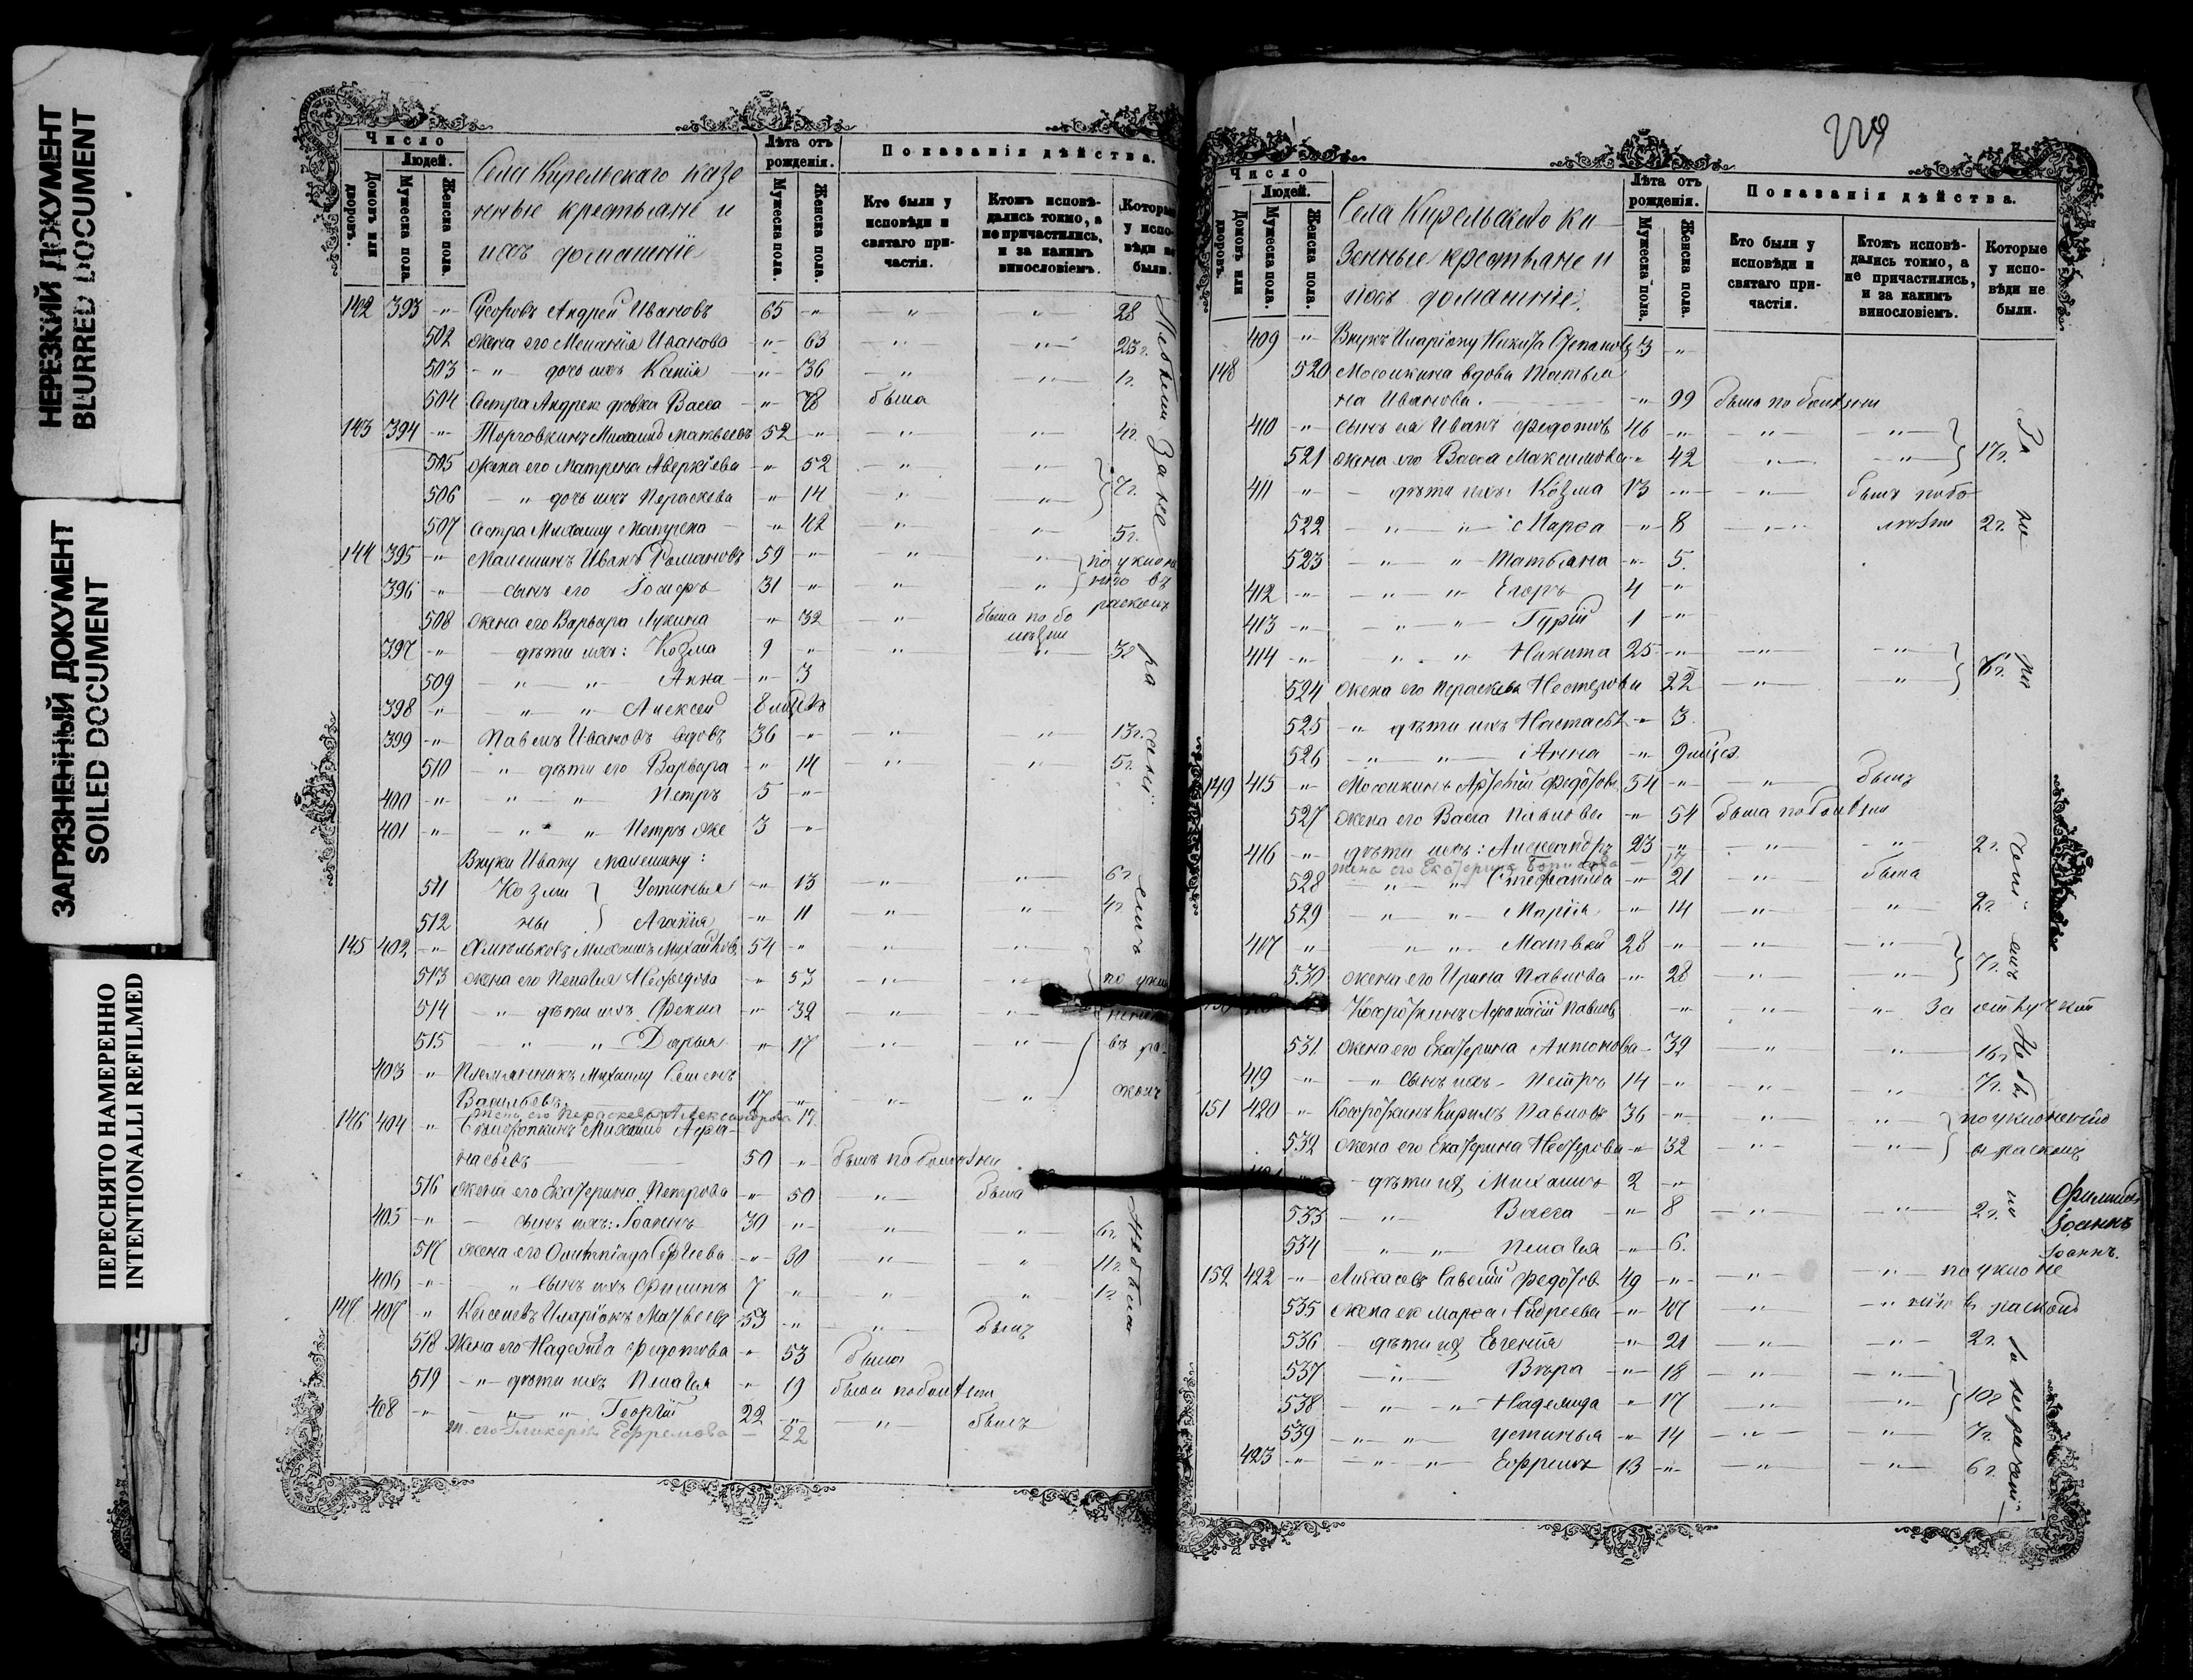 НЕРЕЗКИЙ ДОКУМЕНТ
BLURRED DOCUMENT
ЗАГРЯЗНЕННЫЙ ДОКУМЕНТ
SOILED DOCUMENT
ПЕРЕСНЯТО НАМЕРЕННО
INTENTIONALLY REFILMED
Число
Людей.
Домовъ или дворовъ.
Мужеска пола.
Женска пола.
Села Кирельскаго казе
нные крестьяне и
ихъ домашніе
Лѣта отъ рожденія.
Мужеска пола.
Женска пола.
Показанія дѣйства.
Кто были у исповѣди и святаго причастія.
Ктожъ исповѣдались токмо, а не причастились, и за какимъ винословіемъ.
Которые у исповѣди не были.
142 393 -"- Андрей Ивановъ 65 -"- " " 28
502 жена его Меланія Иванова -"- 63 23 г.
503 -"- дочь ихъ Ксенія -"- 36 1 г.
504 Сестра Андрея дѣвка Васса -"- 78 была
143 394 -"- Торговкинъ Михаилъ Матвеевъ 52 -"- 4 г.
505 жена его Матрена Аверкіева -"- 52
506 -"- дочь ихъ Пераскева -"- 14 7 г.
507 Сестра Михаилу -"- 42 5 г.
144 395 -"- Малешинъ Иванъ Романовъ 59 -"- по уклоне
396 -"- сынъ его Іосифъ 31 -"- нію въ
508 жена его Варвара Лукина -"- 32 была по бо расколъ
лѣзни
397 -"- дѣти ихъ: Козма 9 -"- 3 г.
509 -"- -"- Анна -"- 3
398 -"- -"- Алексей 8
399 -"- Павелъ Ивановъ вдовъ 36 -"- 13 г.
510 -"- дѣти его Варвара -"- 14 5 г.
400 -"- -"- Петръ 5 -"-
401 -"- -"- Петръ же 3 -"-
Внуки Ивану Малешину:
511 Козми } Устинья -"- 13 6 г.
512 ны } Агапія -"- 11 4 г.
145 402 -"- Михаилъ Михайловъ 54 -"-
513 жена его Пелагея -"- 53
514 -"- дѣти ихъ Фекла -"- 32
515 -"- -"- Дарья -"- 17
403 " Племянникъ Михаилу Семенъ
Васильевъ 17 -"-
жена его Пераскева Александрова 17
146 404 " Михаилъ Афа-
насьевъ 50 -"- былъ по болѣзни
516 жена его Екатерина Петрова -"- 50 " была
405 -"- сынъ ихъ: Іоаннъ 30 -"- 6 г.
517 жена его Олимпіада Сергіева -"- 30 11 г.
406 -"- " сынъ ихъ Филипъ 7 " 1 г.
147 407 " Иларіонъ Матвеевъ 53 -"- былъ
518 Жена его Надежда Федотова -"- 53 была
519 -"- дѣти ихъ Пелагея -"- 19 была по болѣзни
408 -"- -"- Георгій 22 -"- " былъ
ж. его Гликерія Ефремова — 22
229
Число
Людей.
Домовъ или дворовъ.
Мужеска пола.
Женска пола.
Села Кирельскаго ка
зенные крестьяне и
ихъ домашніе.
Лѣта отъ рожденія.
Мужеска пола.
Женска пола.
Показанія дѣйства.
Кто были у исповѣди и святаго причастія.
Ктожъ исповѣдались токмо, а не причастились, и за какимъ винословіемъ.
Которые у исповѣди не были.
409 " Внукъ Иларіону Никита Степановъ 3 -"-
148 520 Мосошкина вдова Татья
на Иванова. -"- 99 была по болѣзни
410 -"- сынъ ея Иванъ Федотовъ 46 -"-
521 жена его Васса Максимова -"- 42 17 г.
411 " - дѣти ихъ: Козма 13 -"- былъ по бо
522 -"- -"- Марѳа -"- 8 лѣзни 2 г.
523 -"- " Татьяна -"- 5.
412 -"- -"- " Егоръ 4 -"-
413 -"- " " Гурій 1 -"-
414 -"- " " Никита 25 -"-
524 жена его Пераскева Нестерова 22 6 г.
525 -"- дѣти ихъ Настасья -"- 3
526 " Анна -"- 9 мѣся.
149 415 " Федотовъ 54 -"- былъ
527 жена его Васса Павлова -"- 54 была по болѣзни
416 -"- дѣти ихъ: Александръ 23 -"- 2 г.
жена его Екатерина Борисова — 17
528 -"- -"- Степанида -"- 21 -"- была
529 -"- -"- Марія -"- 14 2 г.
417 " " " Матвей 28 -"-
530 жена его Ирина Павлова -"- 28 7 г.
Афанасій Павловъ -"- -"- " За отлучкой
531 жена его Екатерина Антонова 39 16 г.
419 -"- " сынъ ихъ - Петръ 14 -"- 7 г.
151 420 -"- Кирилъ Павловъ 36 -"- по уклоненію
532 жена его Екатерина -"- 32 въ расколъ
- дѣти ихъ Михаилъ 2 -"-
533 -"- Васса -"- 8 2 г.
534 " " Пелагея -"- 6.
Филипъ
Іоаннъ
Іоаннъ.
152 422 -"- Савелій Федотов 49 -"- по уклоне
535 жена ег Марѳа Андреева -"- 47 нію въ расколъ
536 - дѣти их Евгенія -"- 21 2 г.
537 -"- Вѣра -"- 18
538 -"- -"- Надежда -"- 17 10 г.
539 -"- -"- Устинья -"- 14 7 г.
423 -"- -"- " Ефремъ 13 -"- 6 г.